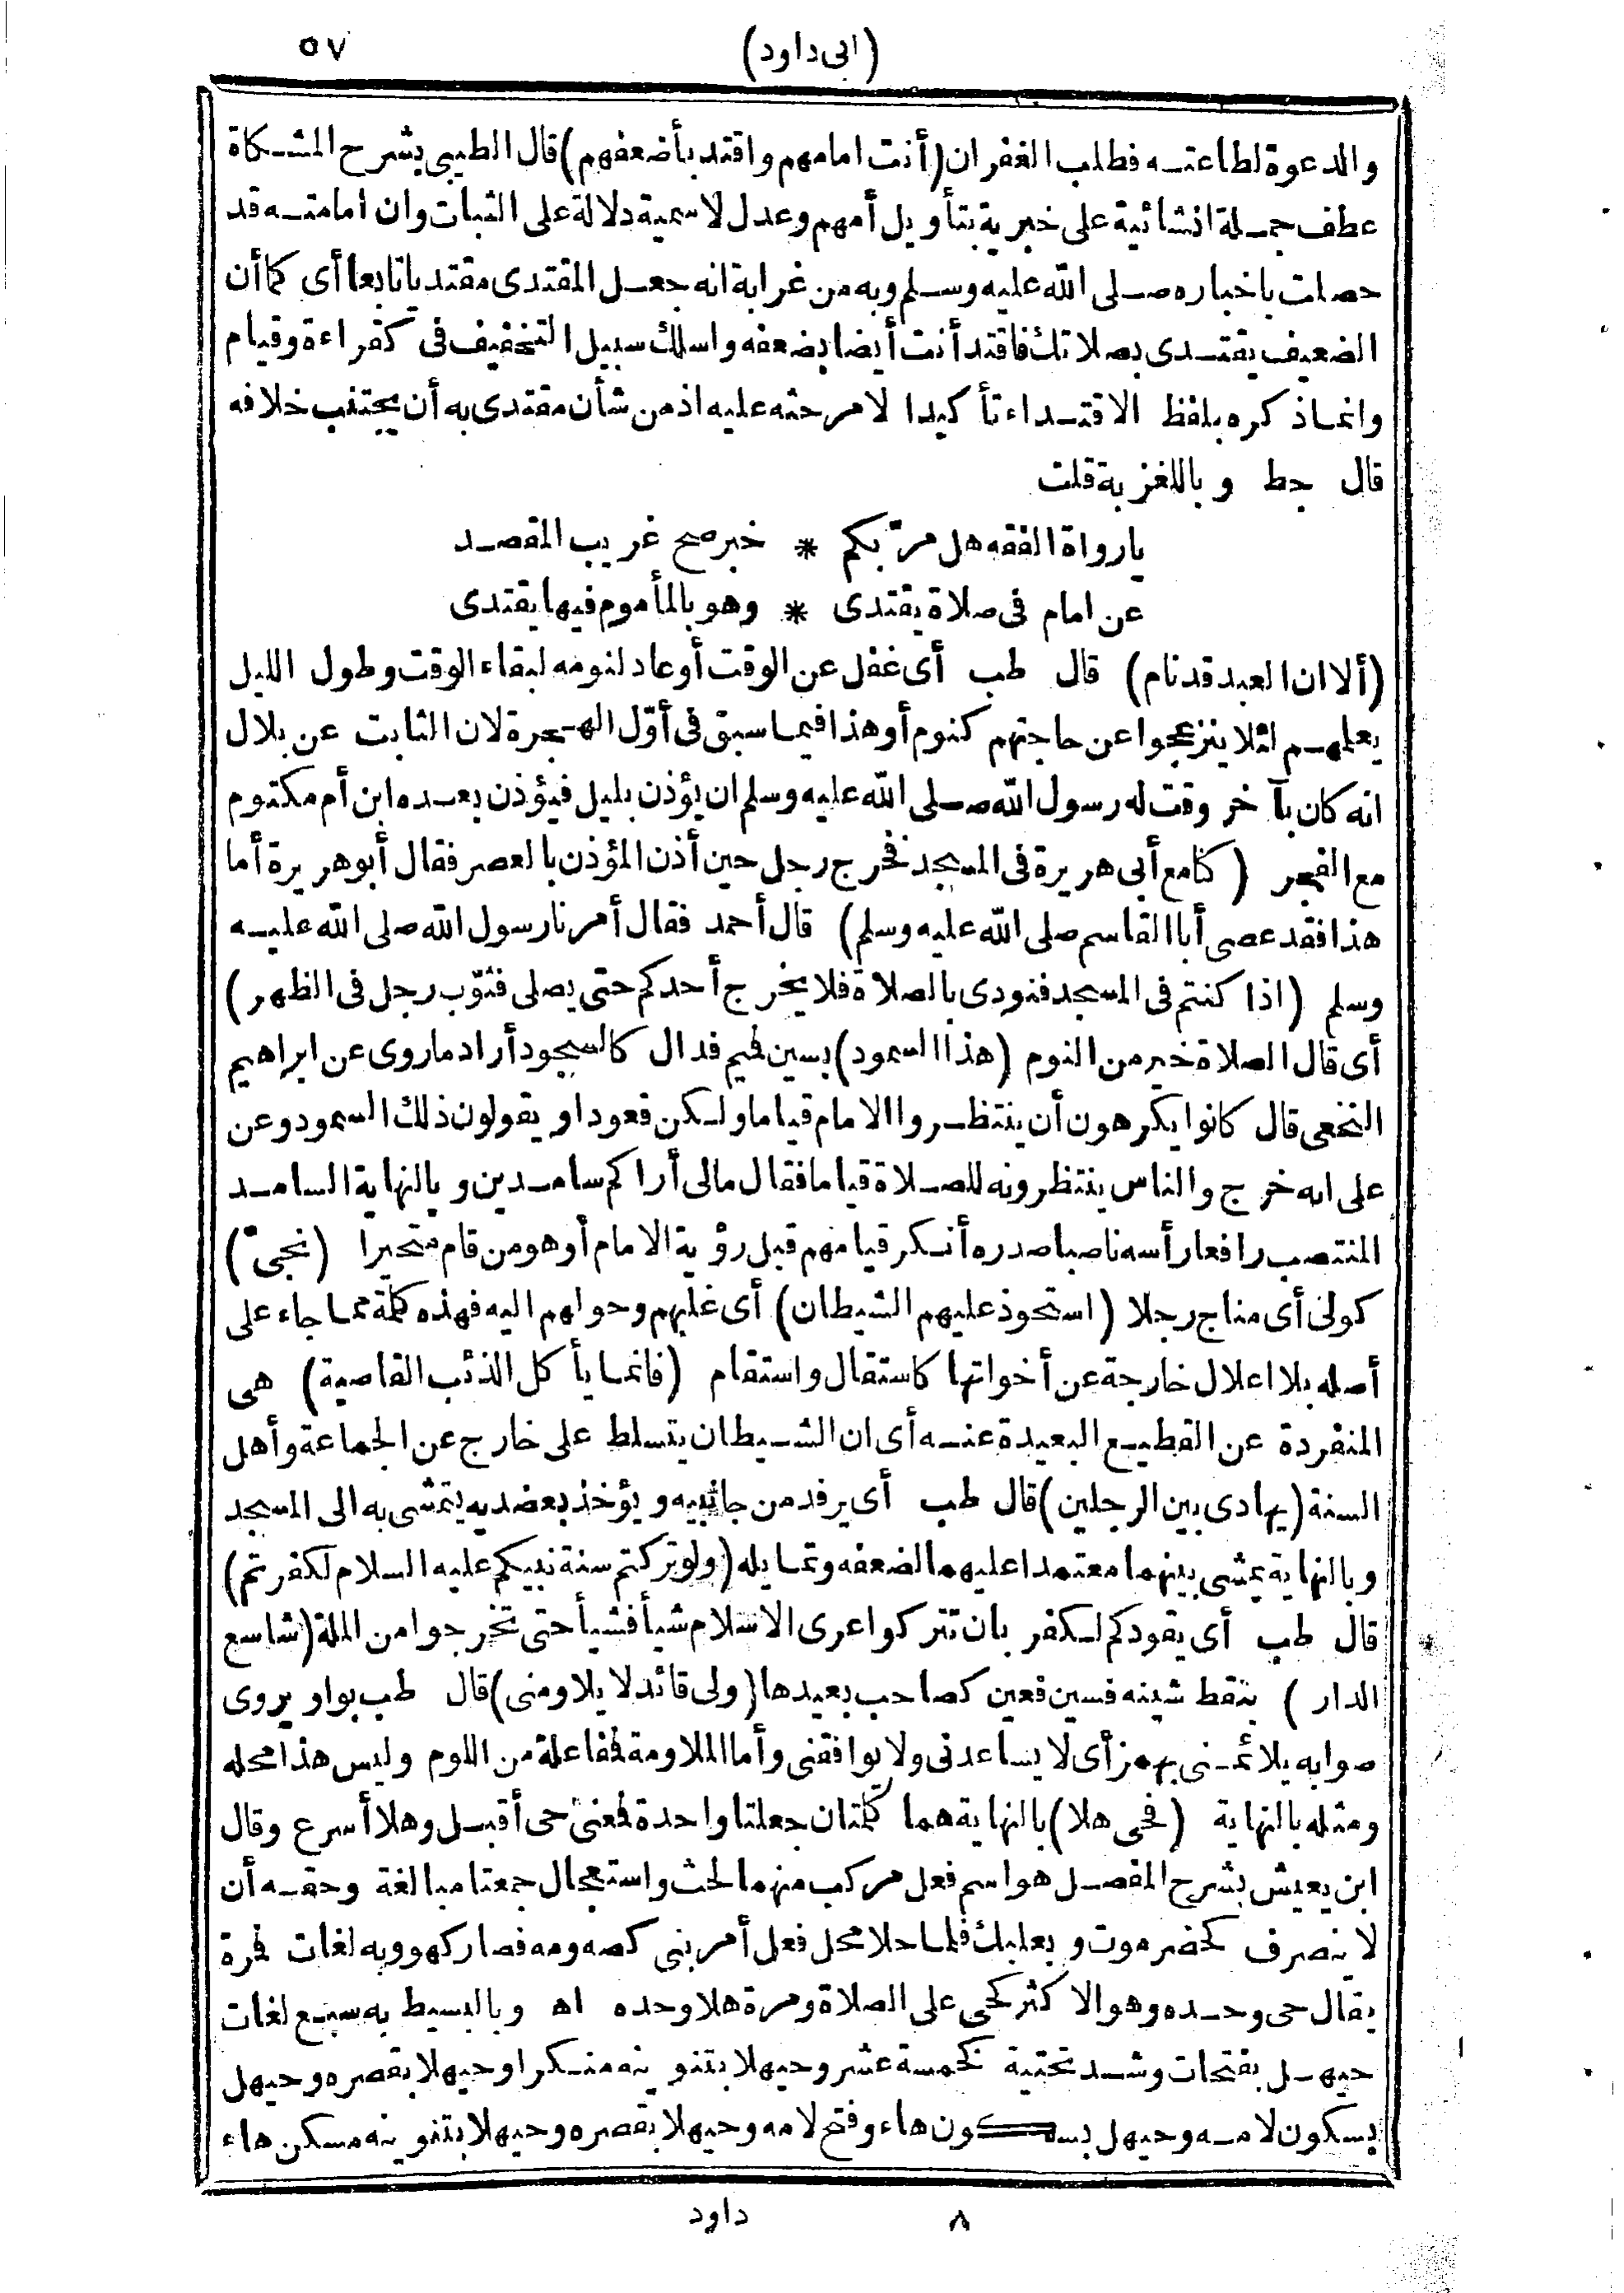 (ابى داود) ٥٧
والدعوة لطاعته فطلب الغفران (أنت امامهم واقتد بأضعفهم) قال الطيبى بشرح المشكاة
عطف جملة انشائية على خبرية بتأويل أمهم وعدل لاسمية دلالة على الثبات وان امامته قد
حصلت باخباره صلى الله عليه وسلم وبه من غرابة انه جعل المقتدى مقتديا تابعا أى كما أن
الضعيف يقتدى بصلاتك فاقتد أنت أيضا بضعفه واسلك سبيل التخفيف فى كقراءة وقيام
وانما ذكره بلفظ الاقتداء تأكيدا لامر حثه عليه اذ من شأن مقتدى به أن يجتنب خلافه
قال جط وباللغز به قلت
يارواة الفقه هل مرّ بكم * خبر صح غريب المقصد
عن امام فى صلاة يقتدى * وهو بالمأموم فيها يقتدى
(ألا ان العبد قد نام) قال طب أى غفل عن الوقت أو عاد لنومه لبقاء الوقت وطول الليل
يعلمهم لئلا ينزعجوا عن حاجتهم كنوم أو هذا فيما سبق فى أوّل الهجرة لان الثابت عن بلال
انه كان بآخر وقت له رسول الله صلى الله عليه وسلم ان يؤذن بليل فيؤذن بعده ابن أم مكتوم
مع الفجر (كنا مع أبى هريرة فى المسجد فخرج رجل حين أذن المؤذن بالعصر فقال أبو هريرة أما
هذا فقد عصى أبا القاسم صلى الله عليه وسلم) قال أحمد فقال أمرنا رسول الله صلى الله عليه
وسلم (اذا كنتم فى المسجد فنودى بالصلاة فلا يخرج أحدكم حتى يصلى فثوّب رجل فى الظهر)
أى قال الصلاة خير من النوم (هذا السمود) بسين فميم فدال كالسجود أراد ما روى عن ابراهيم
النخعى قال كانوا يكرهون أن ينتظروا الامام قياما ولكن قعودا ويقولون ذلك السمود وعن
على انه خرج والناس ينتظرونه للصلاة قياما فقال مالى أراكم سامدين وبالنهاية السامد
المنتصب رافعا رأسه ناصبا صدره أنكر قيامهم قبل رؤية الامام أو هو من قام متحيرا (نجىّ)
كولىّ أى مناج رجلا (استحوذ عليهم الشيطان) أى غلبهم وحواهم اليه فهذه كلمة مما جاء على
أصله بلا اعلال خارجة عن أخواتها كاستقال واستقام (فانما يأكل الذئب القاصية) هى
المنفردة عن القطيع البعيدة عنه أى ان الشيطان يتسلط على خارج عن الجماعة وأهل
السنة (يهادى بين الرجلين) قال طب أى يرفد من جانبيه ويؤخذ بعضديه يتمشى به الى المسجد
وبالنهاية يمشى بينهما معتمدا عليهما لضعفه وتمايله (ولو تركتم سنة نبيكم عليه السلام لكفرتم)
قال طب أى يقودكم لكفر بان تتركوا عرى الاسلام شيأ فشيأ حتى تخرجوا من الملة (شاسع
الدار) بنقط شينه فسين فعين كصاحب بعيدها (ولى قائد لا يلاومنى) قال طب بواو يروى
صوابه يلائمنى بهمز أى لا يساعدنى ولا يوافقنى وأما الملاومة فمفاعلة من اللوم وليس هذا محله
ومثله بالنهاية (فحى هلا) بالنهاية هما كلمتان جعلتا واحدة فمعنى حى أقبل وهلا أسرع وقال
ابن يعيش بشرح المفصل هو اسم فعل مركب منهما لحث واستعجال جمعتا مبالغة وحقه أن
لا ينصرف كحضرموت وبعلبك فلما حلا محل فعل أمر بنى كصه ومه فصار كهو وبه لغات فمرة
يقال حى وحده وهو الاكثر كحى على الصلاة ومرة هلا وحده اه وبالبسيط به سبع لغات
حيهل بفتحات وشد تحتية كخمسة عشر وحيهلا بتنوينه منكرا وحيهلا بقصره وحيهل
بسكون لامه وحيهل بسكون هاء وفتح لامه وحيهلا بقصره وحيهلا بتنوينه مسكن هاء
٨ داود